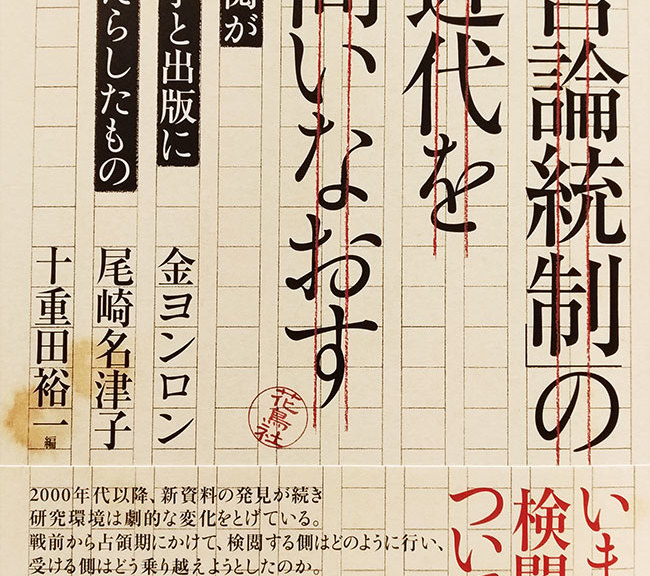 言論統制」の
近代を
問いなおす
閲が
学と出版に
たらしたもの
金ヨンロン
尾崎名津子
十重田裕一 編
花鳥社
いま
検閲
つい
2000年代以降、新資料の発見が続き
研究環境は劇的な変化をとげている。
戦前から占領期にかけて、検閲する側はどのように行い、
受ける側はどう乗り越えようとしたのか。